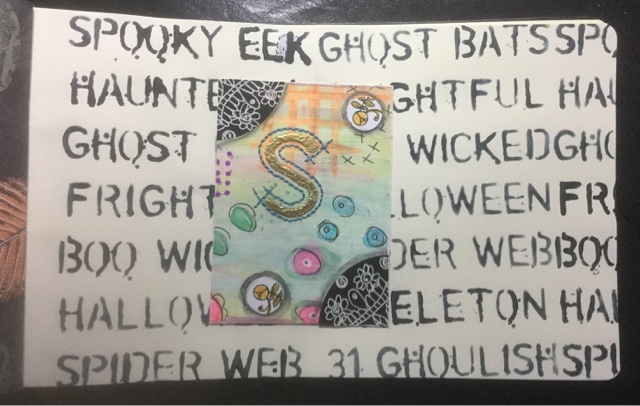 SPOOKY EEK GHOST BATS SPO
HAUNTE GHTFUL HAU
GHOST WICKED GHO
S
FRIGHT LLOWEEN FR
BOO WIC DER WEB BOO
HALLOW ELETON HAL
SPIDER WEB 31 GHOULISH SPI